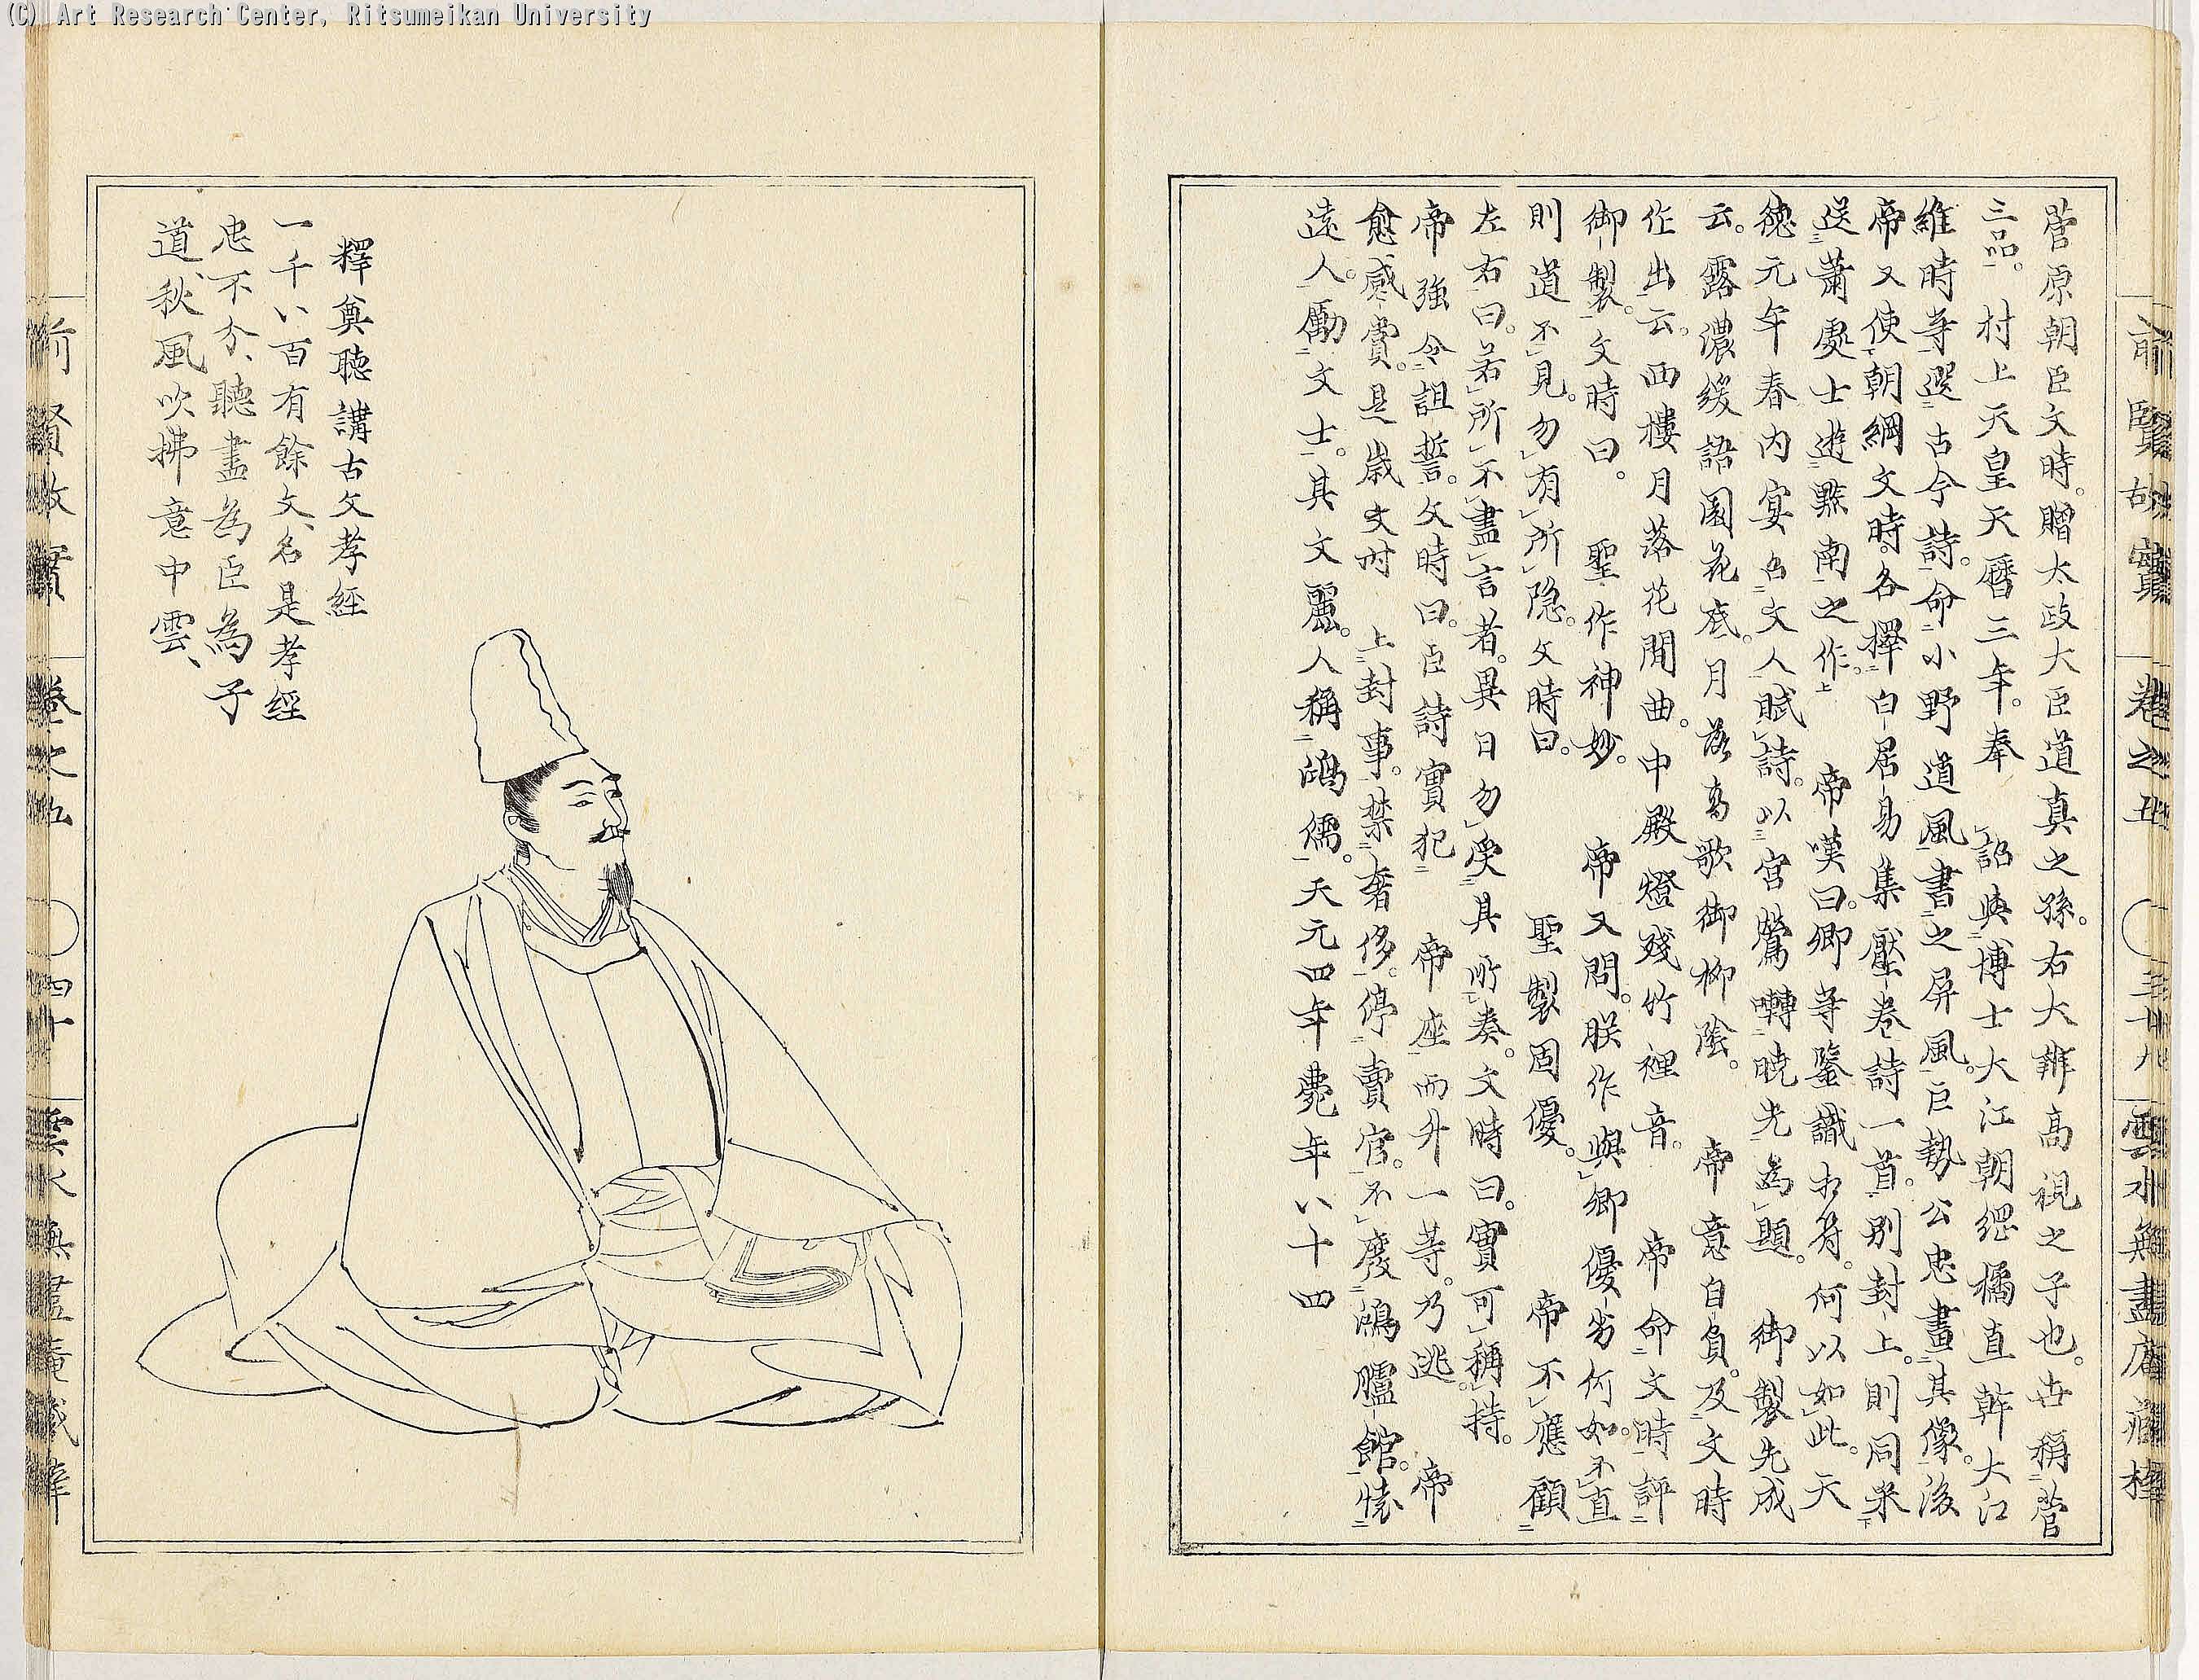 (C) Art Research Center, Ritsumeikan University
菅原朝臣文時。贈太政大臣道真之孫。右大辨高視之子也。世稱菅
三品。村上天皇天曆三年。奉 詔與博士大江朝綱橘直幹大江
維時等選古今詩。命小野道風書之屏風。巨勢公忠畫其像。後
帝又使朝綱文時。各擇白居易集壓卷詩一首。別封上。則同采
送蕭處士遊黔南之作。 帝嘆曰。卿等鑒識相符。何以如此。天
德元年春內宴召文人賦詩。以宮鶯囀曉光為題。 御製先成
云。露濃緩語園花底。月落高歌御柳陰。 帝意自負。及文時
作出云。西樓月落花間曲。中殿燈殘竹裡音。 帝命文時評
御製。文時曰。 聖作神妙。 帝又問。朕作與卿優劣何如。不直
則道不見。勿有所隱。文時曰。 聖製固優。 帝不應顧
左右曰。若所不盡言者。異日勿受其所奏。文時曰。實可稱持。 帝
帝強令詛誓。文時曰。臣詩實犯 帝座而升一等。乃逃。
愈感賞。是歲文時 上封事。禁奢侈。停賣官。不廢鴻臚館。懷
遠人。勵文士。其文麗。人稱鴻儒。天元四年薨年八十四
釋奠聽講古文孝經
一千八百有餘文、名是孝經
忠不分、聽盡為臣為子
道、秋風吹拂意中雲、
前賢故實 卷之五 三十九 雲水無盡庵藏梓
前賢故實 卷之五 四十 雲水無盡庵藏梓